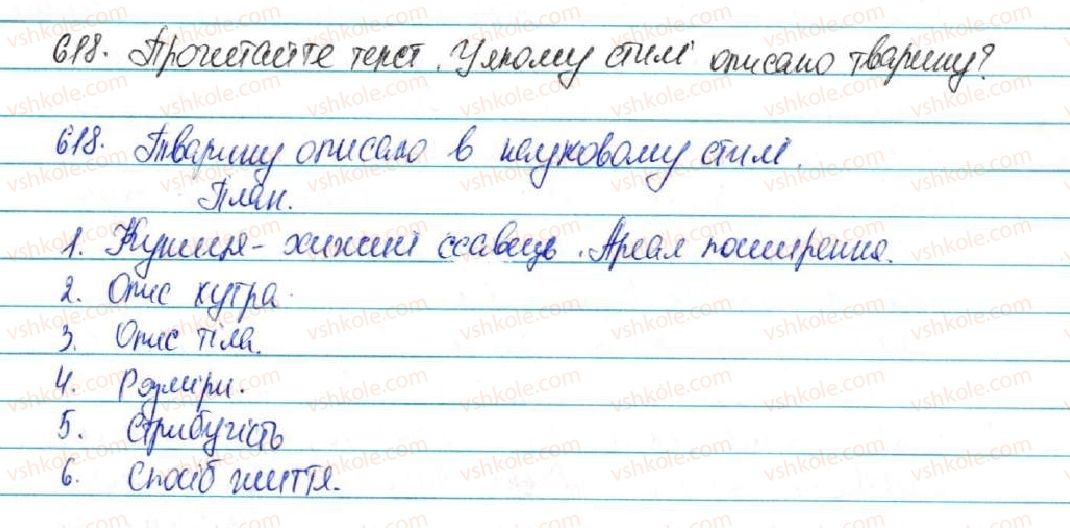 618. Прочитайте текст. У якому стилі описано тварину?
618. Тварину описано в науковому стилі.
План.
1. Куниця - хижий ссавець. Ареал поширення.
2. Опис хутра.
3. Опис тіла.
4. Розміри.
5. Стрибучість
6. Спосіб життя.